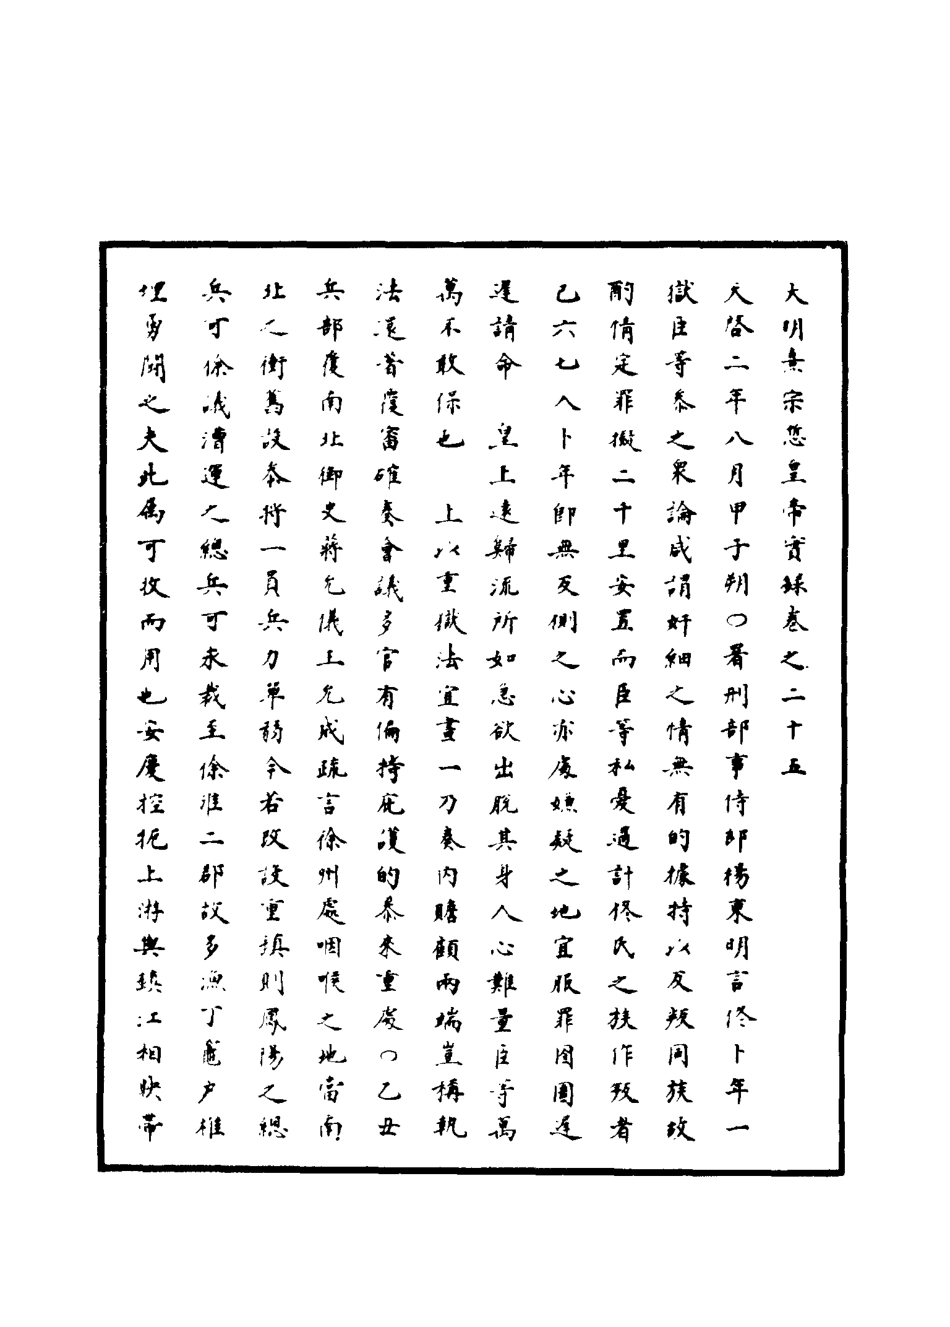 大明熹宗悊皇帝實錄卷之二十五
天啓二年八月甲子朔○署刑部事侍郎楊東明言佟卜年一
獄臣等叅之衆論咸謂奸細之情無有的據持以反叛同族故
酌情定罪擬二千里安置而臣等私憂過計佟氏之族作叛者
已六七人卜年卽無反側之心亦處嫌疑之地宜服罪囹圄遲
遲請命　皇上遠歸流所如急欲出脫其身人心難量臣等萬
萬不敢保也　上以重獄法宜畫一刀奏內瞻顧兩端豈稱執
法還著覆審確奏會議多官有偏持庇護的叅來重處○乙丑
兵部覆南北御史蔣允儀王允成疏言徐州處咽喉之地當南
北之衝舊設叅將一員兵力單弱今若改設重鎮則鳳陽之總
兵可徐議漕運之總兵可永裁至徐淮二郡故多漁丁竈戶椎
埋勇鬪之夫此屬可收而用也安慶控扼上游與鎮江相映帶